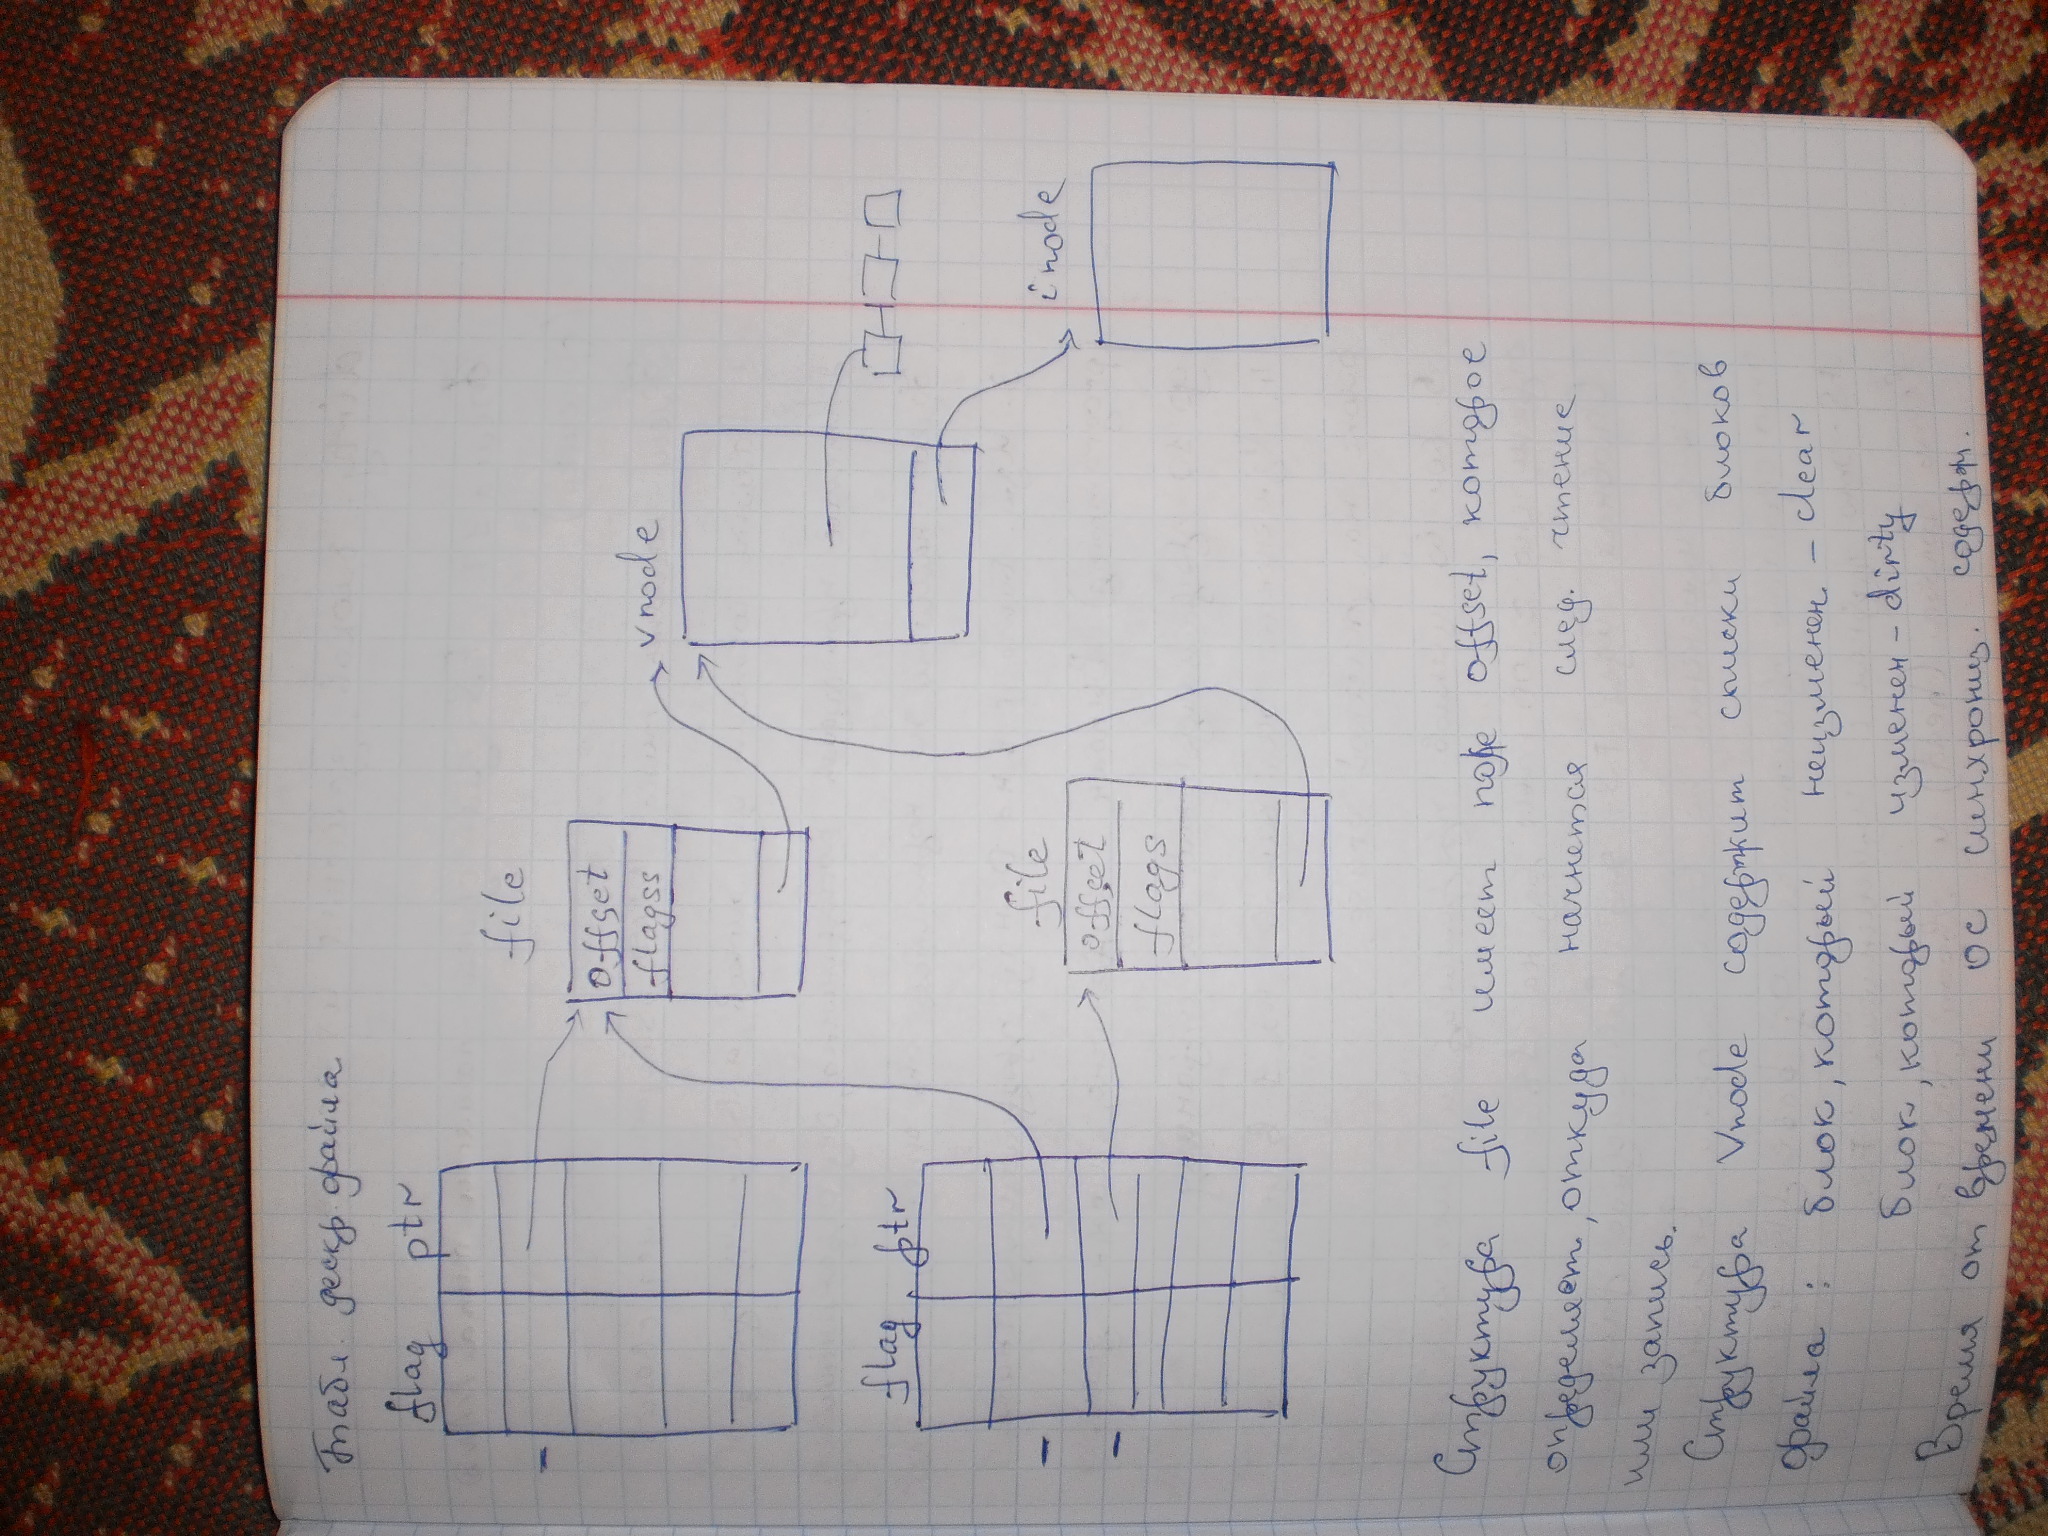 Табл. дескр. файла
flag ptr
file
offset
flagss
vnode
flag ptr
file
offset
flags
inode
Структура file имеет поле offset, которое
определяет, откуда начнется след. чтение
или запись.
Структура Vnode содержит списки блоков
файла : блок, который неизменен. – clear
блок, который изменен – dirty
Время от времени ОС синхрониз. содерж.